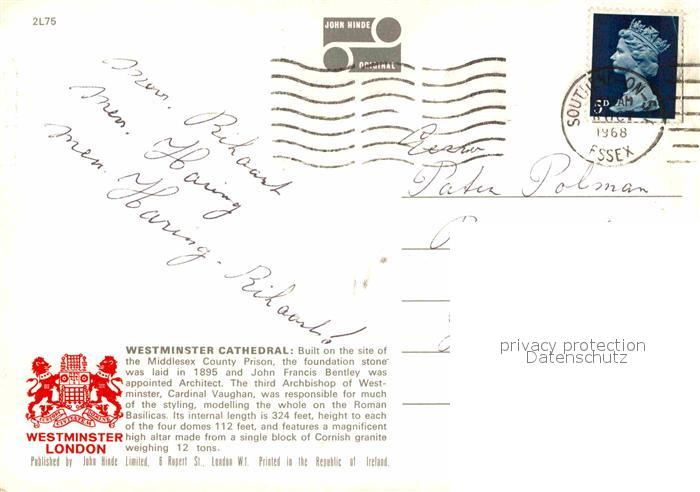 2L75
JOHN HINDE
ORIGINAL
AM
1968
ESSEX
Pater Polman
mem. Rikaart
men. Haring
men. Haring-Rikaart
privacy protection
Datenschutz
WESTMINSTER CATHEDRAL: Built on the site of
the Middlesex County Prison, the foundation stone
was laid in 1895 and John Francis Bentley was
appointed Architect. The third Archbishop of West-
minster, Cardinal Vaughan, was responsible for much
of the styling, modelling the whole on the Roman
Basilicas. Its internal length is 324 feet, height to each
of the four domes 112 feet, and features a magnificent
high altar made from a single block of Cornish granite
weighing 12 tons.
WESTMINSTER
LONDON
Published by John Hinde Limited, 6 Rupert St., London W1. Printed in the Republic of Ireland.